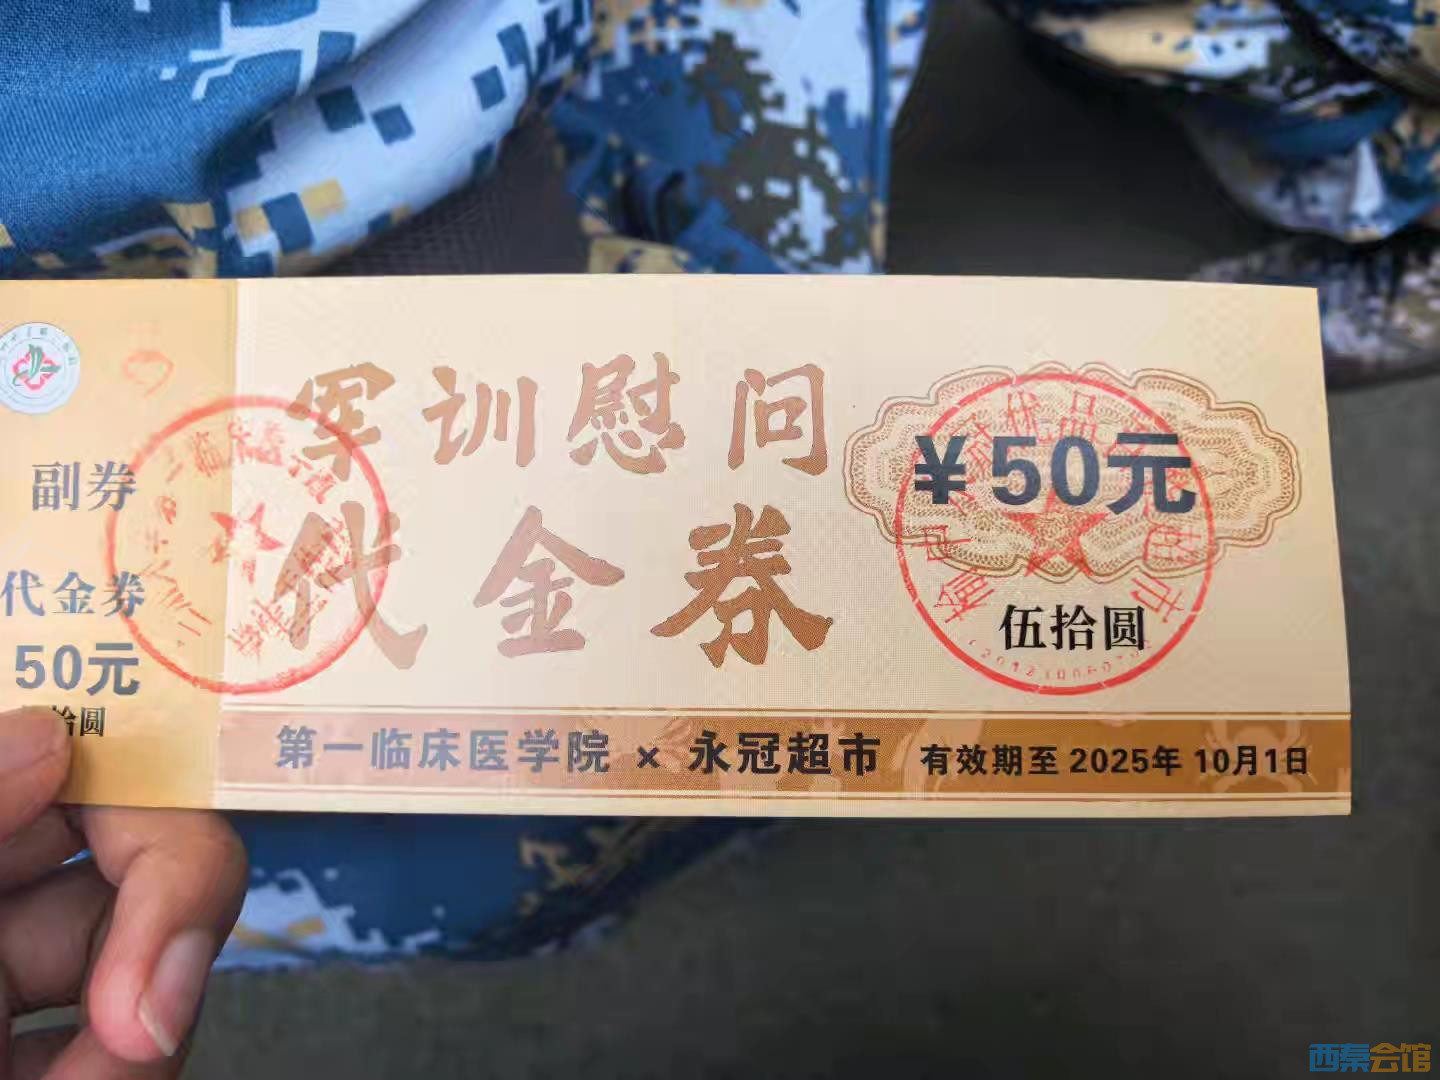 副券
代金券
50元
拾圆
军训慰问
代金券
¥50元
伍拾圆
第一临床医学院 × 永冠超市 有效期至 2025年 10月1日
西秦会馆